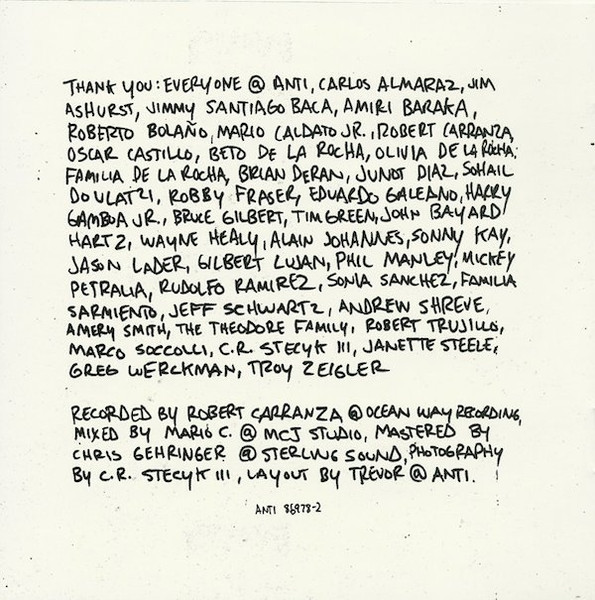 THANK YOU: EVERYONE @ ANTI, CARLOS ALMARAZ, JIM
ASHURST, JIMMY SANTIAGO BACA, AMIRI BARAKA,
ROBERTO BOLAÑO, MARIO CALDATO JR., ROBERT CARRANZA,
OSCAR CASTILLO, BETO DE LA ROCHA, OLIVIA DE LA ROCHA,
FAMILIA DE LA ROCHA, BRIAN DERAN, JUNOT DIAZ, SOHAIL
DOULATZI, ROBBY FRASER, EDUARDO GALEANO, HARRY
GAMBOA JR., BRUCE GILBERT, TIM GREEN, JOHN BAYARD
HARTZ, WAYNE HEALY, ALAIN JOHANNES, SONNY KAY,
JASON LADER, GILBERT LUJAN, PHIL MANLEY, MICKEY
PETRALIA, RUDOLFO RAMIREZ, SONIA SANCHEZ, FAMILIA
SARMIENTO, JEFF SCHWARTZ, ANDREW SHREVE,
AMERY SMITH, THE THEODORE FAMILY, ROBERT TRUJILLO,
MARCO SOCCOLLI, C.R. STECYK III, JANETTE STEELE,
GREG WERCKMAN, TROY ZEIGLER
RECORDED BY ROBERT CARRANZA @ OCEAN WAY RECORDING,
MIXED BY MARIO C. @ MCJ STUDIO, MASTERED BY
CHRIS GEHRINGER @ STERLING SOUND, PHOTOGRAPHY
BY C.R. STECYK III, LAYOUT BY TREVOR @ ANTI.
ANTI 86978-2